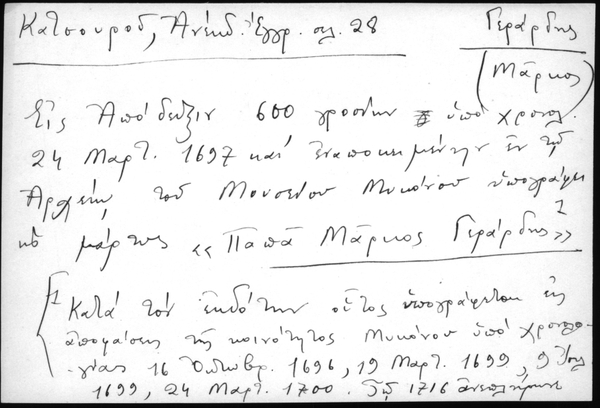 Κατσουροῦ, Ἀνέκδ. Ἔγγρ. σελ. 28
Γεράρδης
(Μάρκος)
Εἰς Ἀπόδειξιν 600 γροσίων ὑπό χρονολ.
24 Μαρτ. 1697 καί ἐναποκειμένην ἐν τῷ
Ἀρχείῳ τοῦ Μουσείου Μυκόνου ὑπογράφει
ὡς μάρτυς «Παπᾶ Μάρκος Γεράρδης»1
1 Κατά τόν ἐκδότην οὗτος ὑπογράφεται εἰς
ἀποφάσεις τῆς κοινότητος Μυκόνου ὑπό χρονολο-
γίας 16 Ὀκτωβρ. 1696, 19 Μαρτ. 1699, 9 Ἰουλ
1699, 24 Μαρτ. 1700. Τῷ 1716